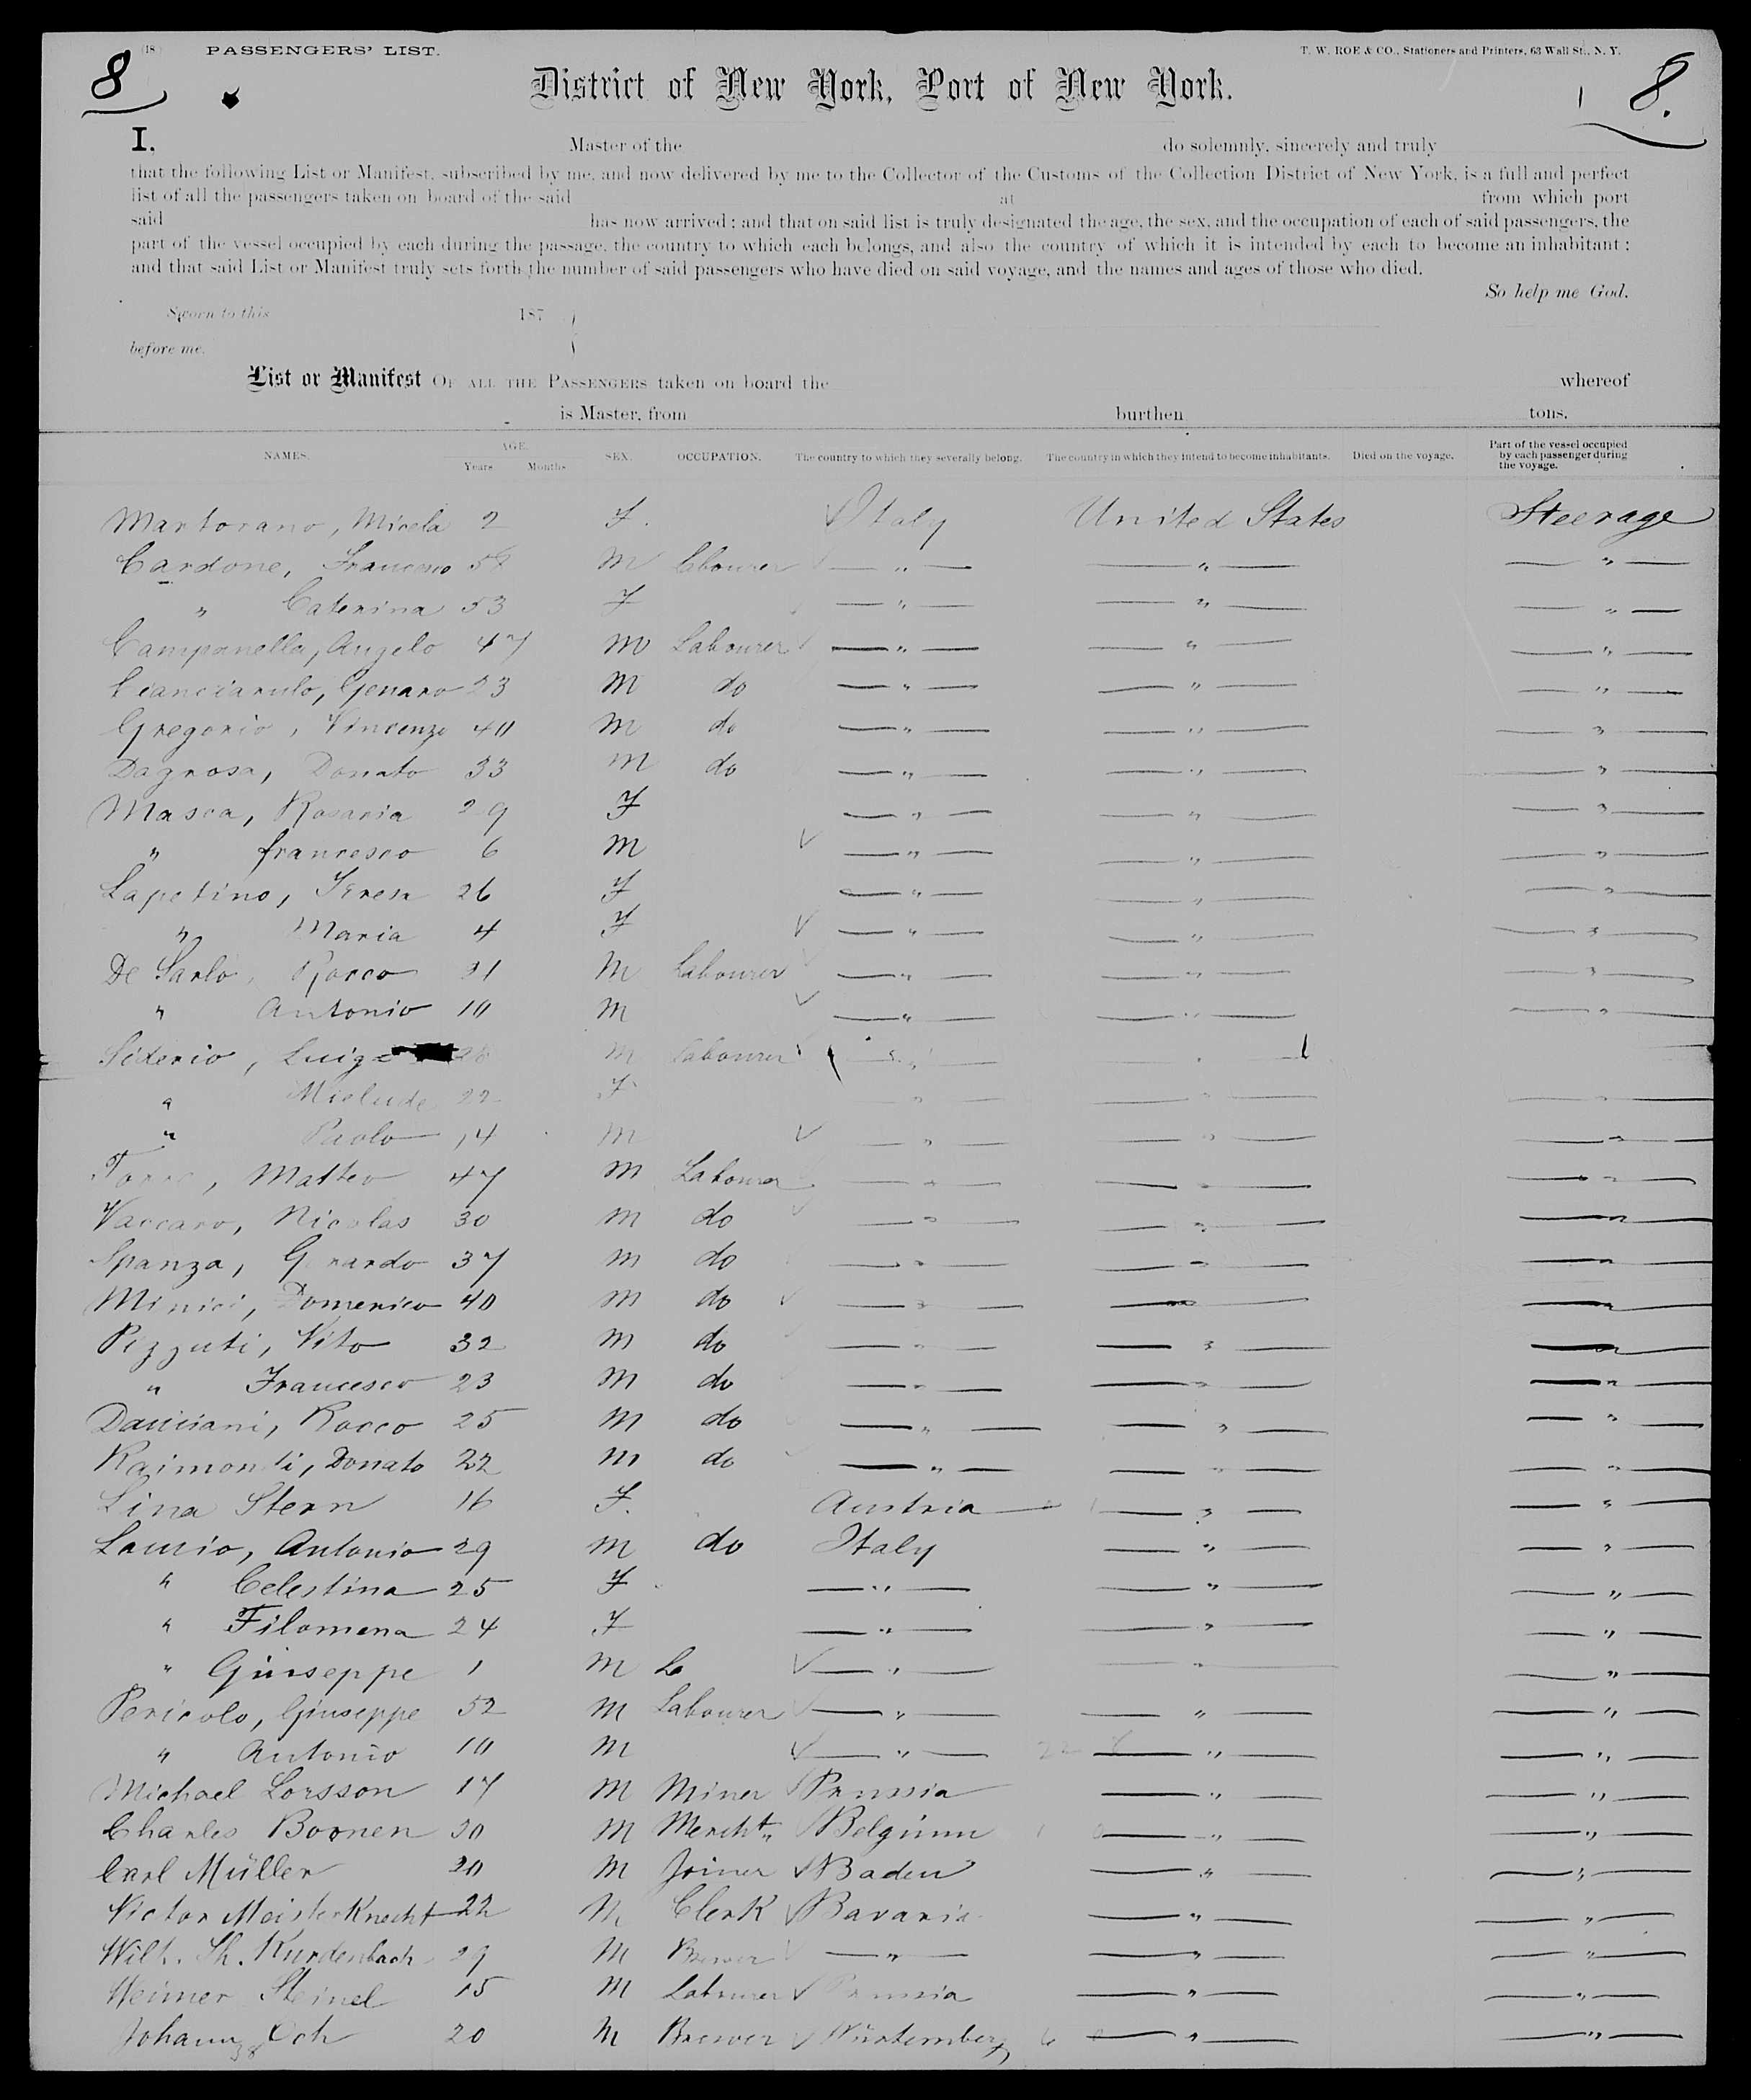 (18) PASSENGERS' LIST. T. W. ROE & CO., Stationers and Printers, 63 Wall St., N. Y.
8 8.
District of New York, Port of New York.
I, Master of the do solemnly, sincerely and truly
that the following List or Manifest, subscribed by me, and now delivered by me to the Collector of the Customs of the Collection District of New York, is a full and perfect
list of all the passengers taken on board of the said at from which port
said has now arrived; and that on said list is truly designated the age, the sex, and the occupation of each of said passengers, the
part of the vessel occupied by each during the passage, the country to which each belongs, and also the country of which it is intended by each to become an inhabitant;
and that said List or Manifest truly sets forth the number of said passengers who have died on said voyage, and the names and ages of those who died.
So help me God.
Sworn to this 187
before me.
List or Manifest OF ALL THE PASSENGERS taken on board the whereof
is Master, from burthen tons.
NAMES. AGE. Years Months SEX. OCCUPATION. The country to which they severally belong. The country in which they intend to become inhabitants. Died on the voyage. Part of the vessel occupied by each passenger during the voyage.
Martorano, Micela 2 F. Italy United States Steerage
Cardone, Francesco 58 M Labourer " " "
" Caterina 53 F " " "
Campanella, Angelo 47 M Labourer " " "
Cianciarulo, Genaro 23 M do " " "
Gregorio, Vincenzo 40 M do " " "
Dagrosa, Donato 33 M do " " "
Masca, Rosaria 29 F " " "
" francesco 6 M " " "
Lapetino, Teresa 26 F " " "
" Maria 4 F " " "
De Carlo, Rocco M Labourer " " "
" Antonio 10 M " " "
Siderio, Luiga 28 M Labourer " " "
" 22 F " " "
" Paolo 14 M " " "
Matteo 47 M Labourer " " "
Vaccaro, Nicolas 30 M do " " "
Spanza, Gerardo 37 M do " " "
Minici, Domenico 40 M do " " "
Pizzuti, Vito 32 M do " " "
" Francesco 23 M do " " "
Rocco 25 M do " " "
Raimondi, Donato 22 M do " " "
Lina Stern 16 F. Austria " "
Antonio 29 M do Italy " "
" Celestina 25 F " " "
" Filomena 24 F " " "
" Giuseppe 1 M " " "
Pericolo, Giuseppe 52 M Labourer " " "
" Antonio 10 M " " "
Michael Lorsson 17 M Miner Prussia " "
Charles Boonen 30 M Mercht. Belgium " "
Carl Müller 20 M Joiner Baden " "
Victor Meisterknecht 22 M Clerk Bavaria " "
Wilh. Th. Kurdenbach 29 M Brewer " " "
Weimer Steinel 15 M Labourer Prussia " "
Johann Och 20 M Brewer Würtemberg " "
38